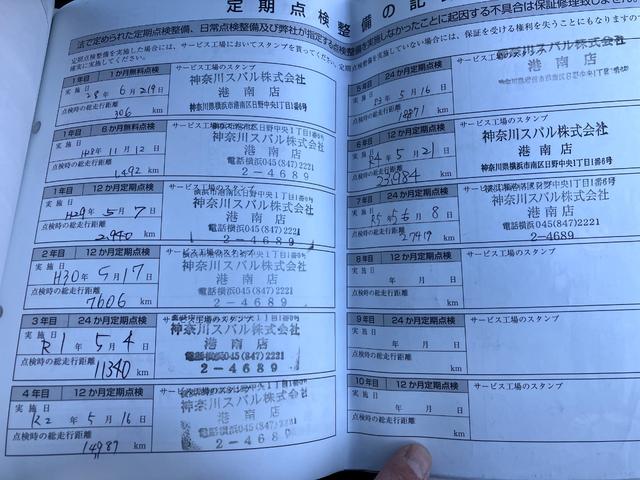 定期点検整備の記
法で定められた定期点検整備、日常点検整備及び弊社が指定する点検整備を実施しなかったことに起因する不具合は保証修理致しません
定期点検整備を実施した場合には、サービス工場においてスタンプを貰ってください。定期点検整備を実施していない場合には、保証を受ける権利を失うこともありますので
確実に実施してください。
1年目 1か月無料点検
サービス工場のスタンプ
実施日
28年6月19日
神奈川スバル株式会社
港南店
神奈川県横浜市港南区日野中央1丁目1番6号
点検時の総走行距離
306 km
1年目 6か月無料点検
サービス工場のスタンプ
実施日
H28年11月12日
神奈川スバル株式会社
港南店
電話横浜045(847)2221
2-4689
点検時の総走行距離
1,492 km
1年目 12か月定期点検
サービス工場のスタンプ
実施日
H29年5月7日
神奈川スバル株式会社
港南店
電話横浜045(847)2221
2-4689
点検時の総走行距離
2,940 km
2年目 12か月定期点検
サービス工場のスタンプ
実施日
H30年5月17日
神奈川スバル株式会社
港南店
電話横浜045(847)2221
2-4689
点検時の総走行距離
7606 km
3年目 24か月定期点検
サービス工場のスタンプ
実施日
R1年5月4日
神奈川スバル株式会社
港南店
電話横浜045(847)2221
2-4689
点検時の総走行距離
11340 km
4年目 12か月定期点検
サービス工場のスタンプ
実施日
R2年5月16日
神奈川スバル株式会社
港南店
電話横浜045(847)2221
2-4689
点検時の総走行距離
14987 km
5年目 24か月定期点検
サービス工場のスタンプ
実施日
R3年5月16日
港南店
点検時の総走行距離
18871 km
6年目 12か月定期点検
サービス工場のスタンプ
実施日
R4年5月21日
神奈川スバル株式会社
港南店
神奈川県横浜市港南区日野中央1丁目1番6号
点検時の総走行距離
23,084 km
7年目 24か月定期点検
サービス工場のスタンプ
実施日
R5年6月8日
神奈川スバル株式会社
港南店
電話横浜045(847)2221
2-4689
点検時の総走行距離
27419 km
8年目 12か月定期点検
サービス工場のスタンプ
実施日
年 月 日
点検時の総走行距離
km
9年目 24か月定期点検
サービス工場のスタンプ
実施日
年 月 日
点検時の総走行距離
km
10年目 12か月定期点検
サービス工場のスタンプ
実施日
年 月 日
点検時の総走行距離
km